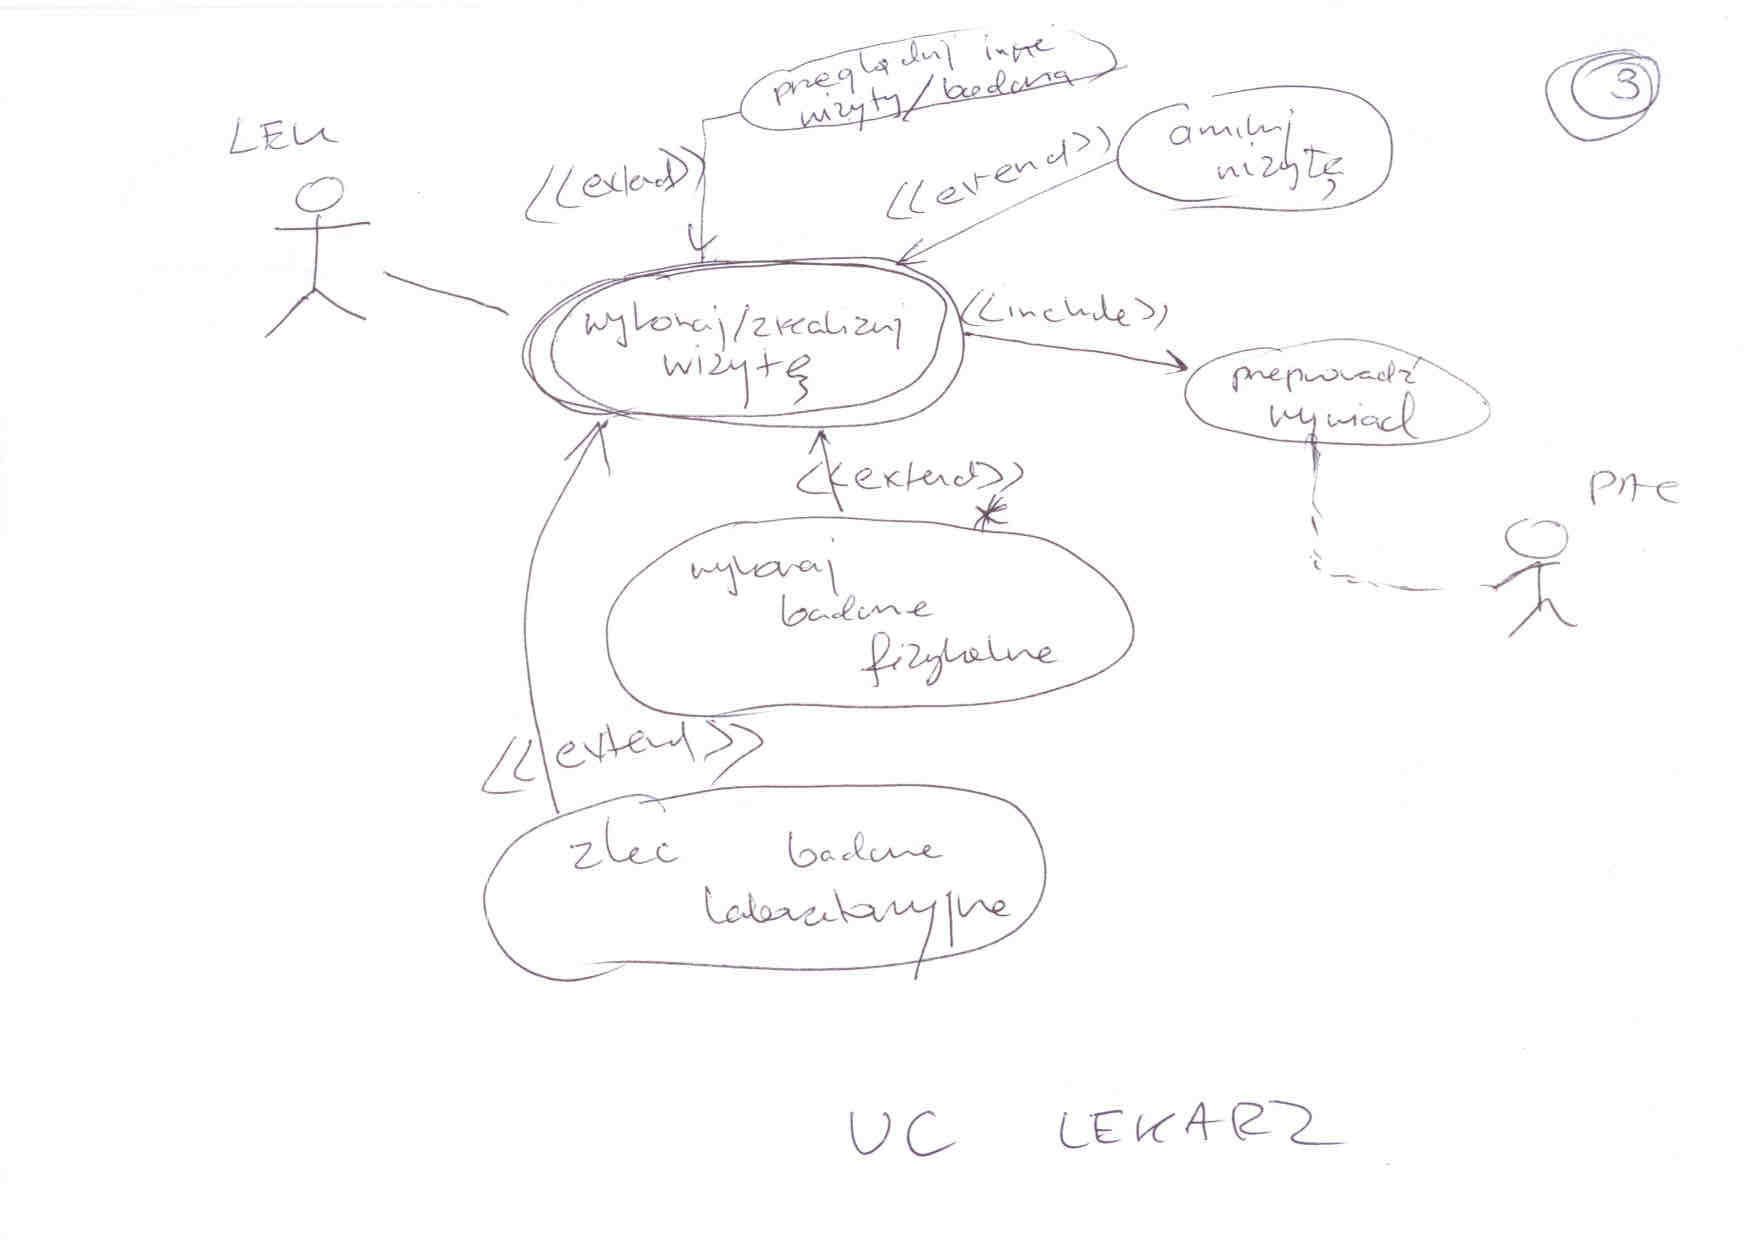 3
LEK
przeglądaj inne
wizyty/badania
<<extend>>
<<extend>>
anuluj
wizytę
wykonaj/zrealizuj
wizytę
<<include>>
przeprowadź
wywiad
<<extend>>
*
PAC
wykonaj
badanie
fizykalne
<<extend>>
zleć badanie
laboratoryjne
UC LEKARZ